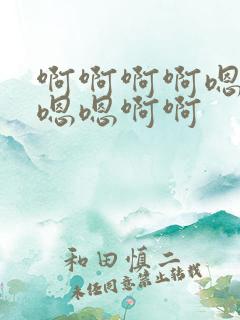 啊啊啊啊嗯
嗯嗯啊啊
和田慎二
未经同意禁止转载